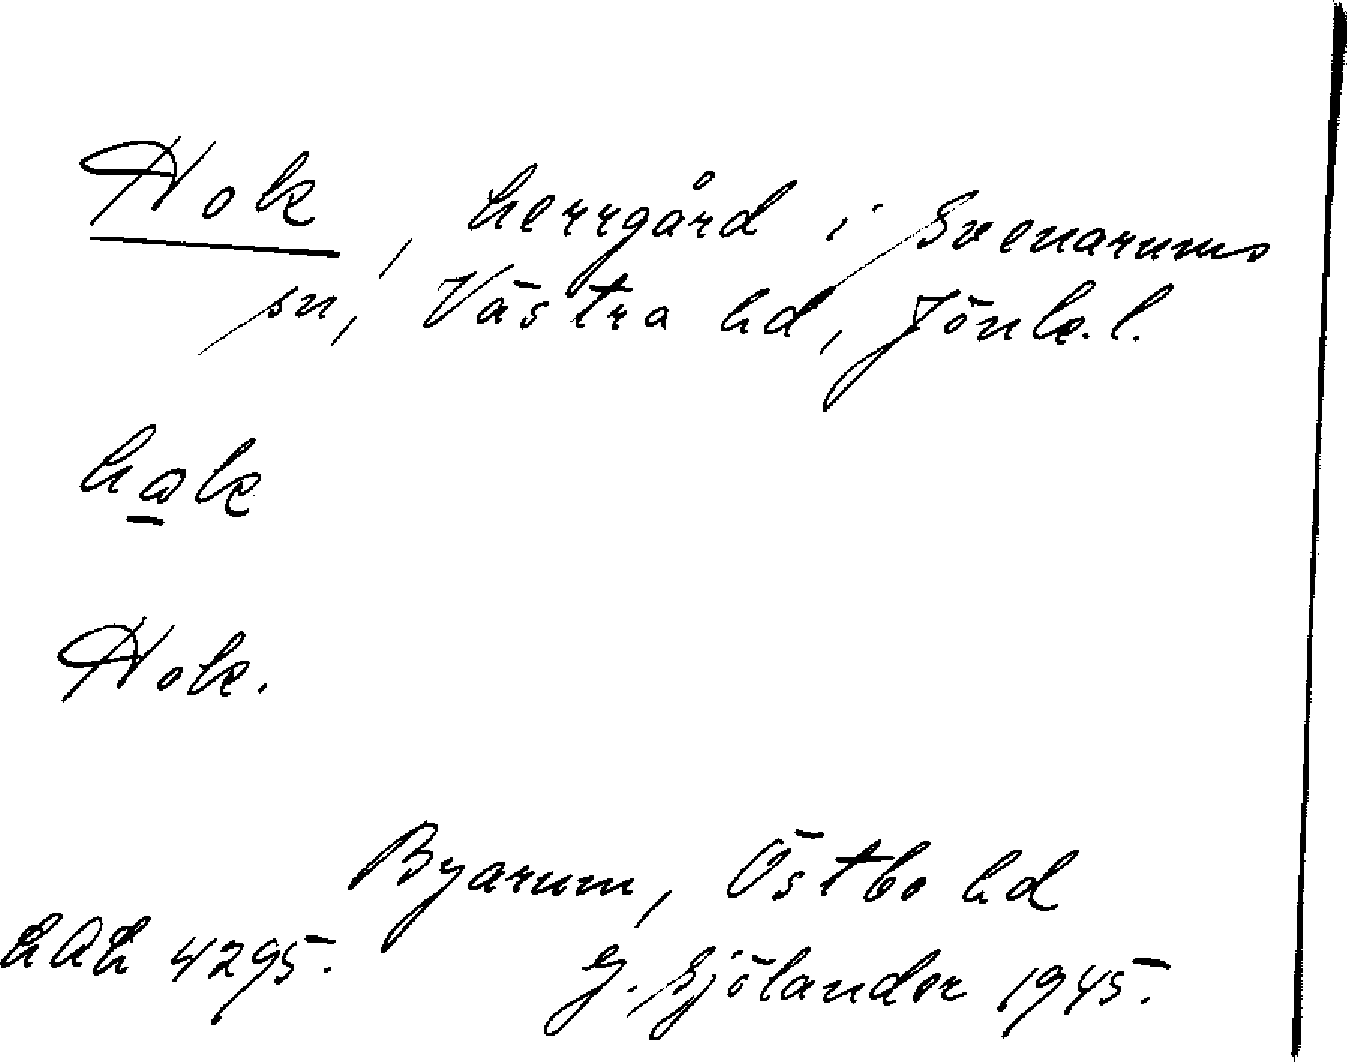 Hok, herrgård i Svenarums
sn, Västra hd, Jönk.l.
hωk
Hok.
Byarum, Östbo hd
4295. G. Sjölander 1945.